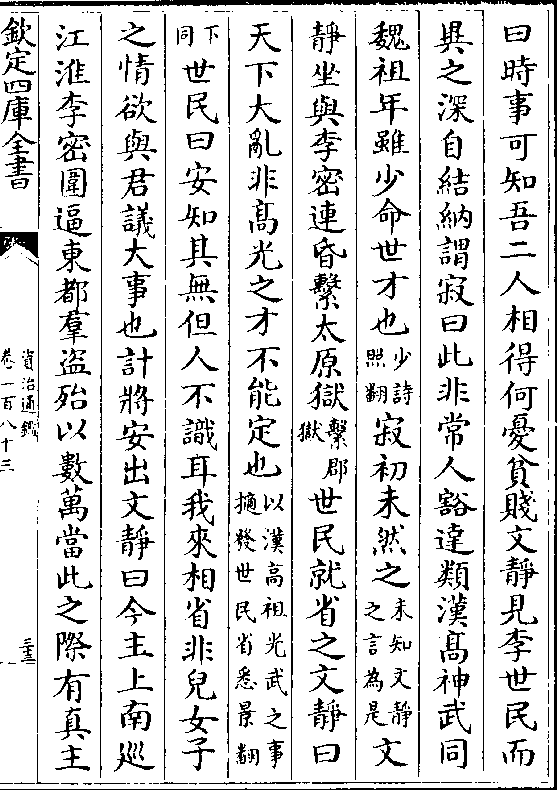 曰時事可知吾二人相得何憂貧賤文靜見李世民而
異之深自結納謂寂曰此非常人豁達類漢髙神武同
魏祖年雖少命世才也少詩照翻寂初未然之未知文靜之言為是文
靜坐與李密連昏繫太原獄繫郡獄世民就省之文靜曰
天下大亂非髙光之才不能定也以漢高祖光武之事擿發世民省悉景翻
下同世民曰安知其無但人不識耳我來相省非兒女子
之情欲與君議大事也計將安出文靜曰今主上南廵
江淮李密圍逼東都羣盜殆以數萬當此之際有真主
欽定四庫全書
資治通鑑
卷一百八十三